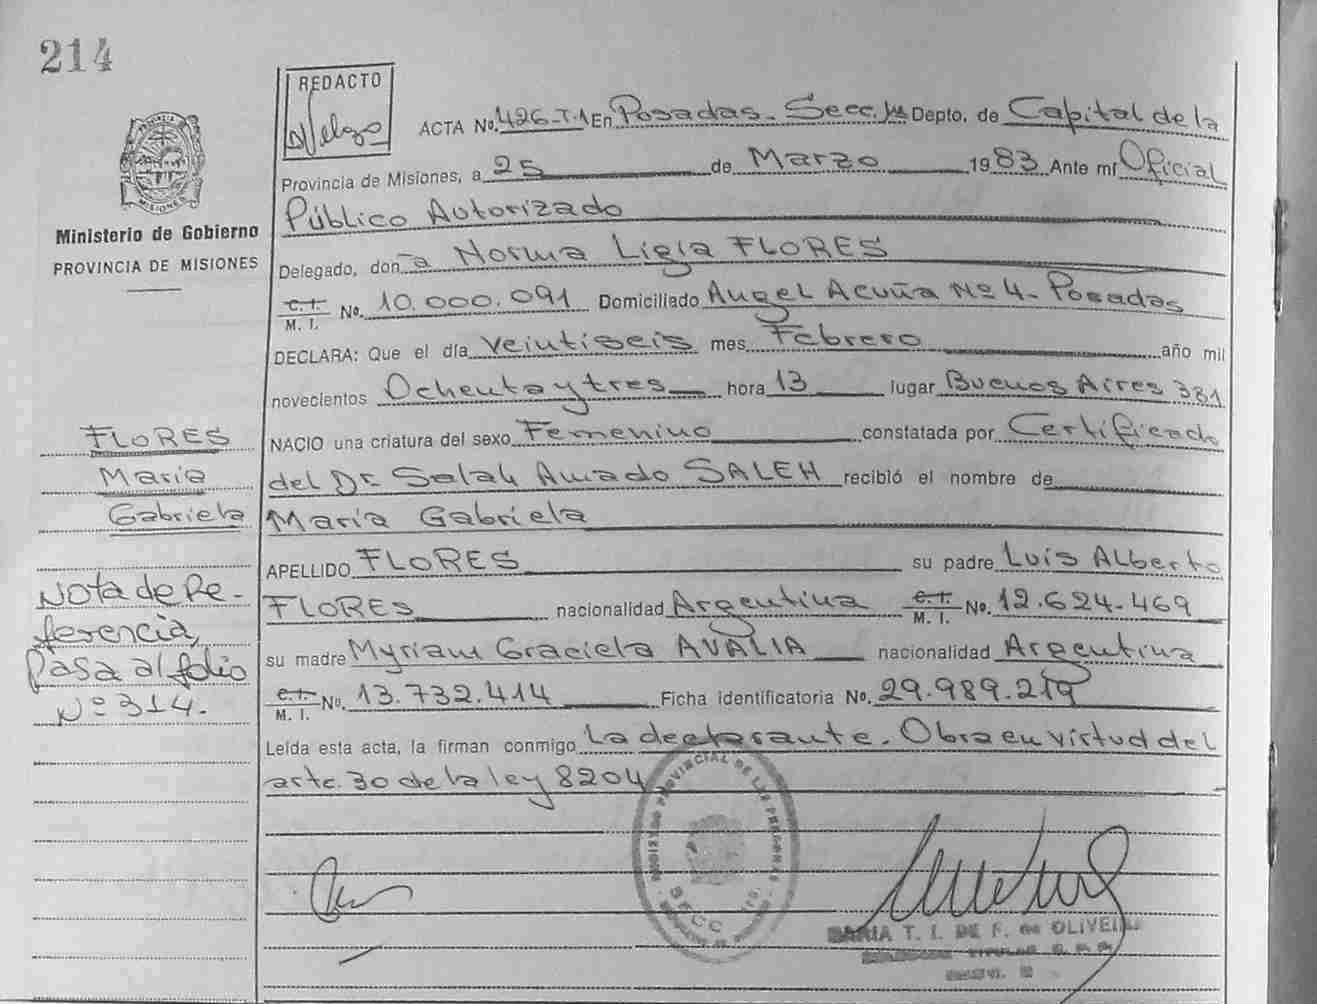 214
REDACTO
Velozo
ACTA No. 426-T.1 En Posadas - Secc. 1ra Depto. de Capital de la
Provincia de Misiones, a 25 de Marzo 1983 Ante mí Oficial
Público Autorizado
PROVINCIA
MISIONES
Ministerio de Gobierno
PROVINCIA DE MISIONES
Delegado, don a Norma Ligia FLORES
C. I.
M. I. No. 10.000.091 Domiciliado Angel Acuña Nº 4 - Posadas
DECLARA: Que el día veintiseis mes Febrero año mil
novecientos Ochenta y tres hora 13 lugar Buenos Aires 381
NACIO una criatura del sexo Femenino constatada por Certificado
del Dr. Salah Amado SALEH recibió el nombre de
María Gabriela
APELLIDO FLORES su padre Luis Alberto
FLORES nacionalidad Argentina C. I. M. I. No. 12.624.469
su madre Myriam Graciela AVALIA nacionalidad Argentina
C. I. M. I. No. 13.732.414 Ficha identificatoria No. 29.989.219
Leída esta acta, la firman conmigo La declarante. Obra en virtud del
artc. 30 de la ley 8204
FLORES
María
Gabriela
Nota de Re-
ferencia,
Pasa al folio
Nº 314.
PROVINCIAL DE LAS PERSONAS
SECC
MARIA T. I. DE F. de OLIVEIRA
TITULAR